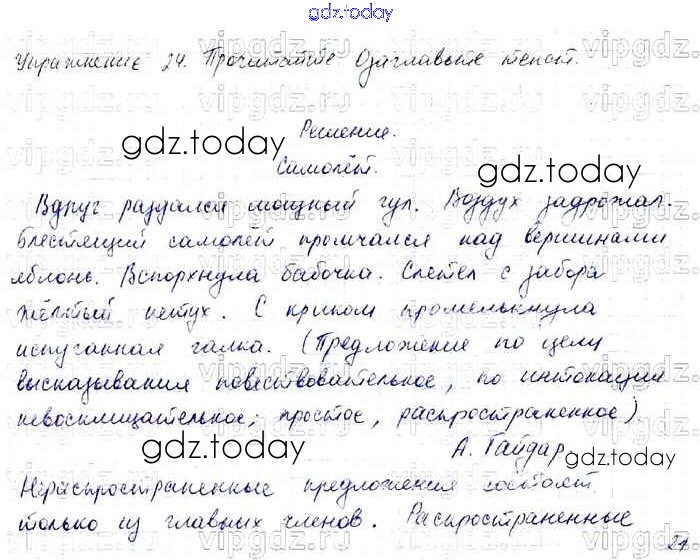 gdz.today
Упражнение 24. Прочитайте Озаглавьте текст.
Решение.
gdz.today
Самолёт.
gdz.today
Вдруг раздался мощный гул. Воздух задрожал.
Блестящий самолёт промчался над вершинами
яблонь. Вспорхнула бабочка. Слетел с забора
жёлтый петух. С криком промелькнула
испуганная галка. (Предложение по целу
высказывания повествовательное, по интонации
невосклицательное, простое, распространенное)
gdz.today
А. Гайдар.
gdz.today
Нераспространенные предложения состоят
только из главных членов. Распространенные
24